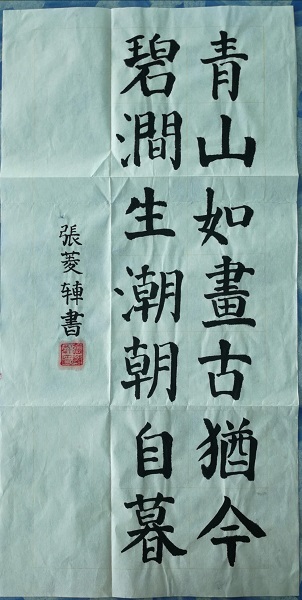 青山如畫古猶今
碧澗生潮朝自暮
張菱轊書